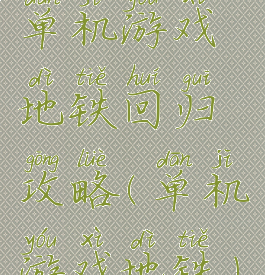 dān jī yóu xì
单机游戏
dì tiě huí guī
地铁回归
gōng lüè dān jī
攻略(单机
yóu xì dì tiě
游戏地铁)